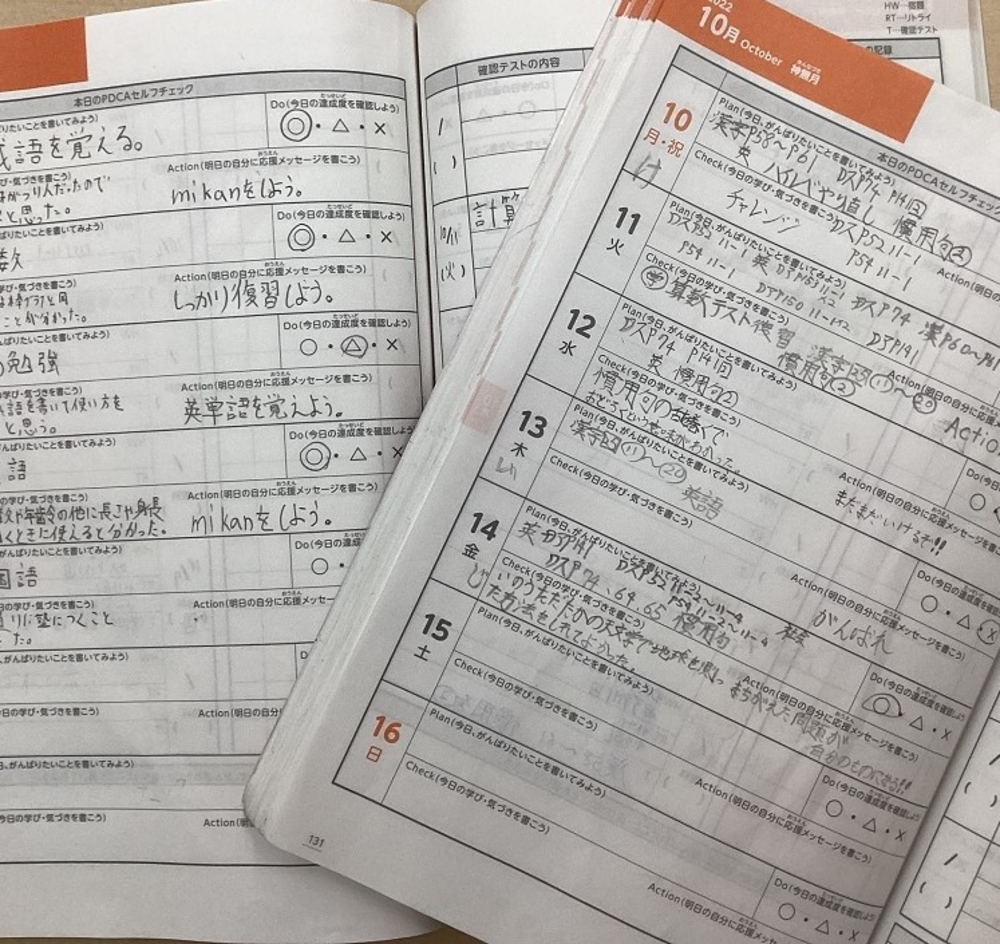 本日のPDCAセルフチェック
りたいことを書いてみよう)
語を覚える。
Do(今日の達成度を確認しよう)
◎・△・×
Action(明日の自分に応援メッセージを書こう)
mikanをしよう。
と思った。
Do(今日の達成度を確認しよう)
◎・△・×
Action(明日の自分に応援メッセージを書こう)
しっかり復習しよう。
ことが分かった。
の勉強
Do(今日の達成度を確認しよう)
○・△・×
学び・気づきを書こう)
語を書いて使い方を
と思う。
Action(明日の自分に応援メッセージを書こう)
英単語を覚えよう。
語
Do(今日の達成度を確認しよう
◎・△・×
の学び・気づきを書こう)
や年齢の他に長さや身長
くときに使えると分かった。
Action(明日の自分に応援メッセージを書こう)
mikanをしよう。
がんばりたいことを書いてみよう)
国語
Do(今日の達
○・
の学び・気づきを書こう)
りに塾につくこと
た。
Action(明日の自分に応援メッセージを書
がんばりたいことを書いてみよう)
の学び・気づきを書こう)
Action(明日の自分
、がんばりたいことを書いてみよう)
今日の学び・気づきを書こう)
Action(明
確認テストの内容
計算
10/11
(火)
HW…宿題
RT…リトライ
T…確認テスト
の記録
2022
10月 October 神無月
本日のPDCAセルフチェック
10
月・祝
Plan(今日、がんばりたいことを書いてみよう)
漢字P58〜P61
DスP74 P14(回)
英
やり直し 慣用句②
Check(今日の学び・気づきを書こう)
チャレンジ
DスP52 11-1
P54 11-1
Action(明日
11
火
Plan(今日、がんばりたいことを書いてみよう)
DスP52 11-1
英
DスP74
漢P60〜P61
P54 11-1
Check(今日の学び・気づきを書こう)
算数テスト復習
漢字
⑪〜⑳
慣用句②
Action(明日の自分に応援
Actio
12
水
Plan(今日、がんばりたいことを書いてみよう)
DスP74 P14(回)
英 慣用句②
Check(今日の学び・気づきを書こう)
慣用句の舌を巻くで
おどろくという意味がわかった。
Action(明日の自分に応援メッセージを書こう)
まだまだいけるぞ!!
Do(今日の
○・
13
木
Plan(今日、がんばりたいことを書いてみよう)
漢字
⑪〜⑳
英語
Check(今日の学び・気づきを書こう)
Action(明日の自分に応援メッセージを書こう)
がんばれ
Do(今日の達成度を
○・△・×
14
金
Plan(今日、がんばりたいことを書いてみよう)
DスP52 11-2〜11-4
DスP74、64、65
P54 11-2〜11-4
慣用句
Check(今日の学び・気づきを書こう)
いのうただたかの天文学で地球を測っ
た方法をしれてよかった。
Action(明日の自分に応援メッセージを書こう)
まちがえた問題が
自分のものになる!!
Do(今日の達成度を確認しよう
○・△・×
15
土
Plan(今日、がんばりたいことを書いてみよう)
Check(今日の学び・気づきを書こう)
Action(明日の自分に応援メッセージを書こう)
Do(今日の達成度を確認しよう
○・△・×
16
日
Plan(今日、がんばりたいことを書いてみよう)
Check(今日の学び・気づきを書こう)
Action(明日の自分に応援メッセージを書こう)
Do(今日の達成度を確認しよう
○・△・×
131